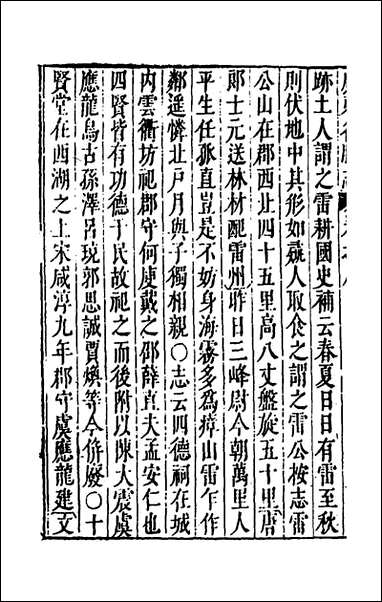 跡土人謂之雷耕國史補云春夏日日有雷至秋
則伏地中其形如彘人取食之謂之雷公按志雷
公山在郡西北四十五里高八丈盤旋五十里唐
郎士元送林材配雷州昨日三峰尉今朝萬里人
平生任孤直豈是不妨身海霧多為瘴山雷乍作
鄰遥憐北戸月與子獨相親〇志云四德祠在城
内雲衢坊祀郡守何庾戴之邵薛直夫孟安仁也
四賢皆有功德于民故祀之而後附以陳大震虞
應龍烏古孫澤呂琰郭思誠賈煥等今併廢〇十
賢堂在西湖之上宋咸淳九年郡守虞應龍建文